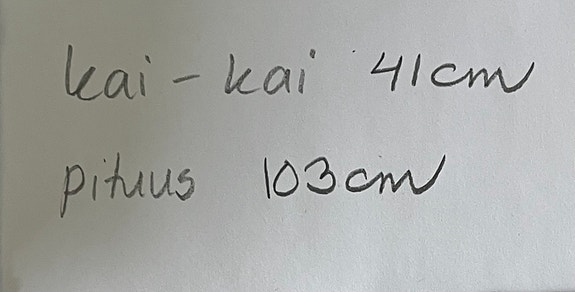 kai - kai 41cm
pituus 103cm